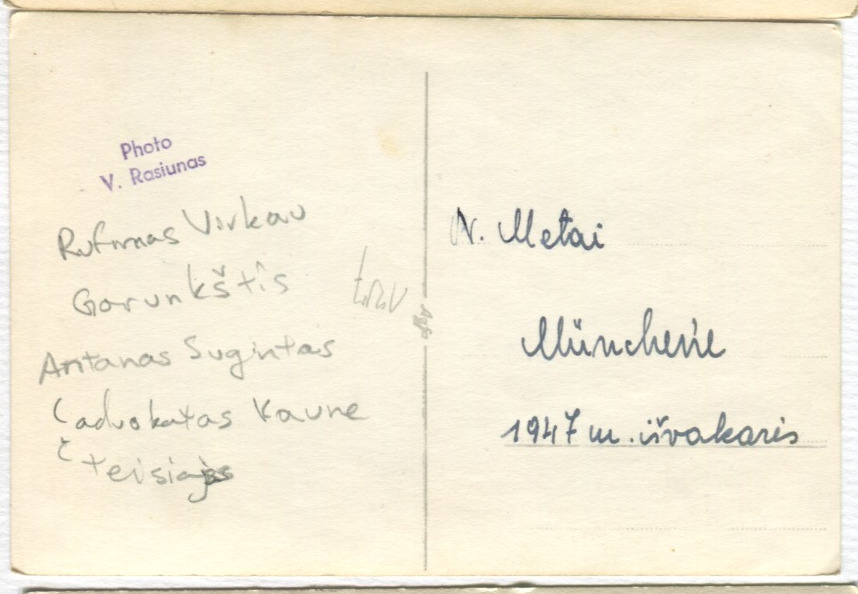 Photo
V. Rasiunas
Rufinas Virkau
Garunkštis
Antanas Sugintas
(advokatas Kaune
teisiajas
Agfa
N. Metai
Münchene
1947 m. išvakarės